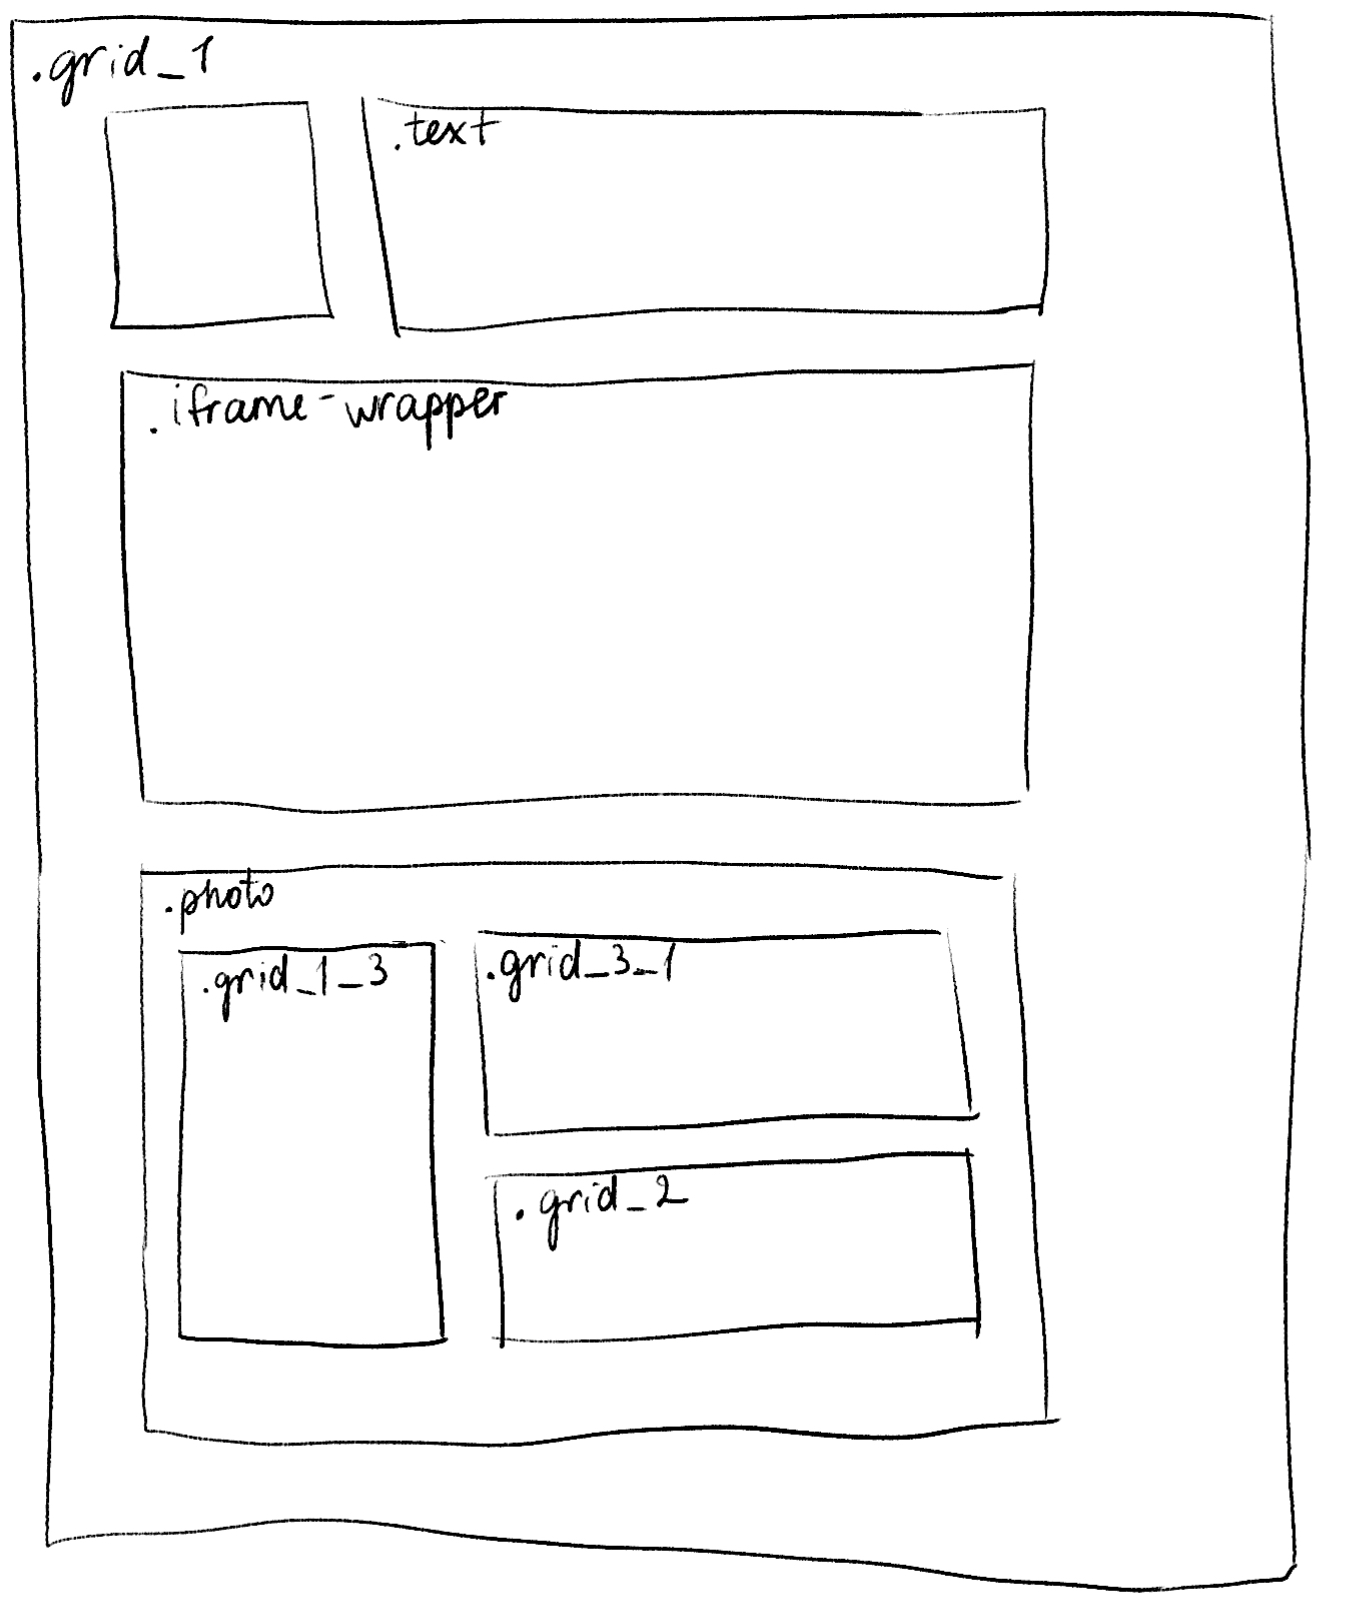 .grid_1
.text
.iframe-wrapper
.photo
.grid_1_3
.grid_3_1
.grid_2